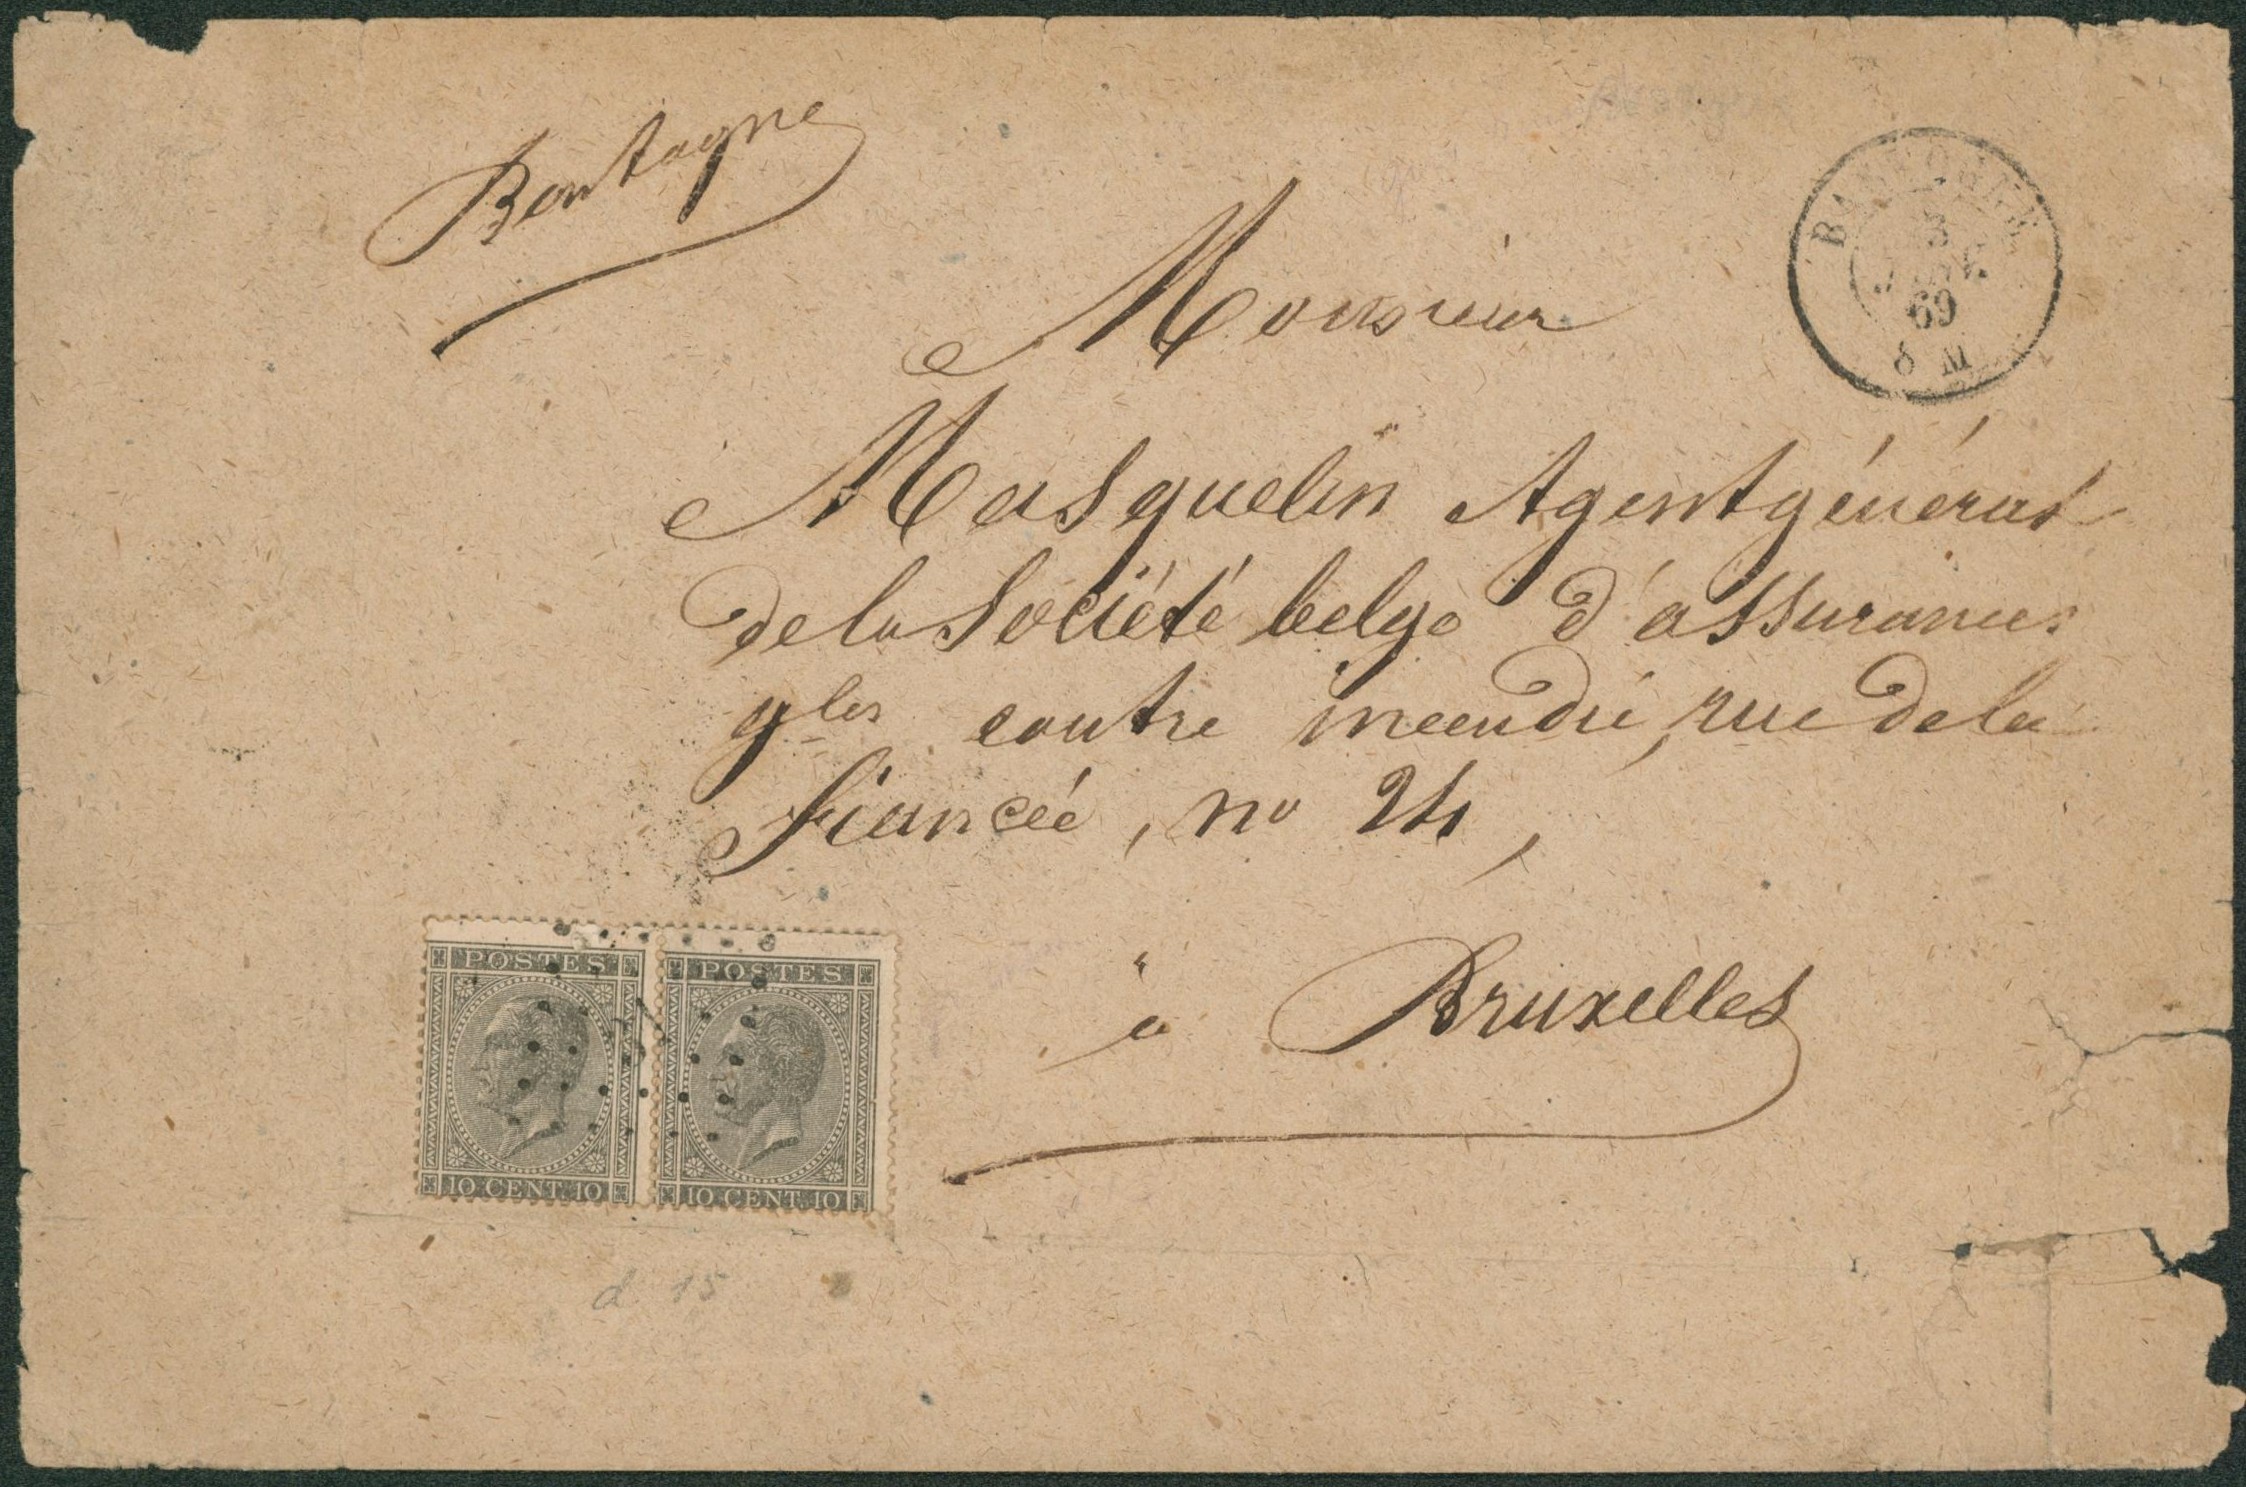 Bontagne
BASTOGNE
3
69
8 M
Monsieur
Masquelin Agent général
de la Société belge d'assurances
gles contre incendie, rue de la
fiancée, no 24,
à Bruxelles
POSTES POSTES
10 CENT. 10 10 CENT. 10
d 15